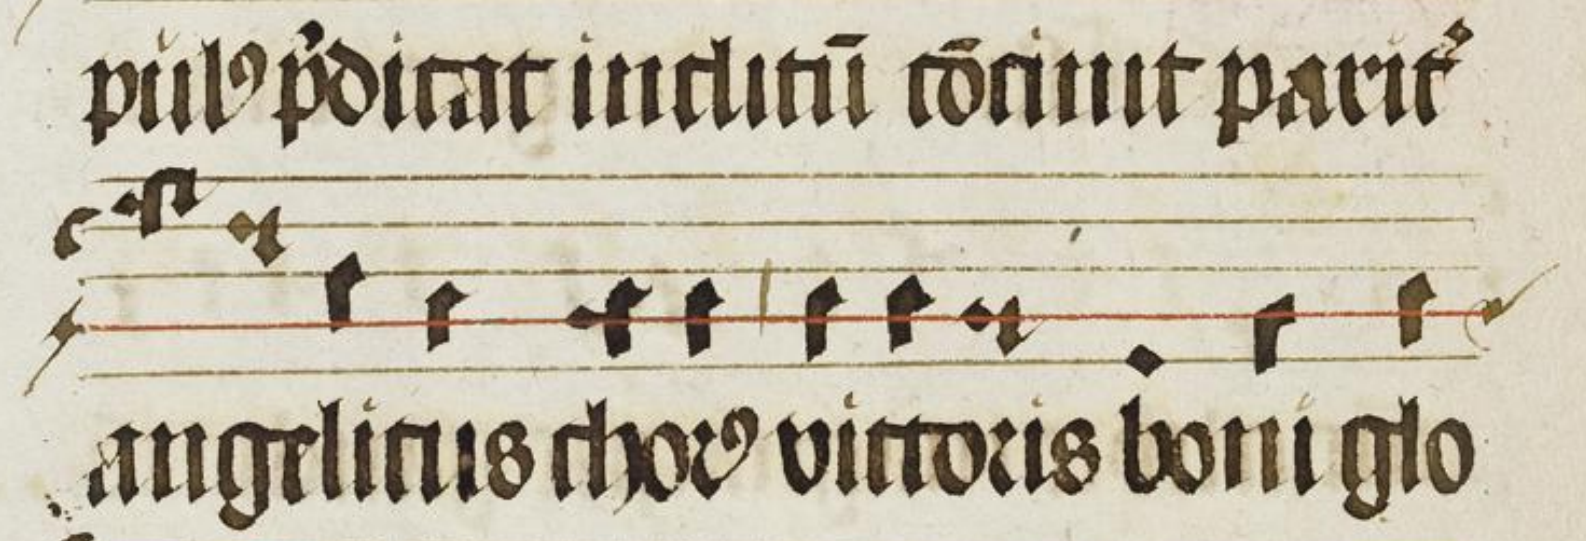 pulꝰ p̄dicat inclitū cōcinit parit᷑
angelicus chorꝰ victoris boni glo